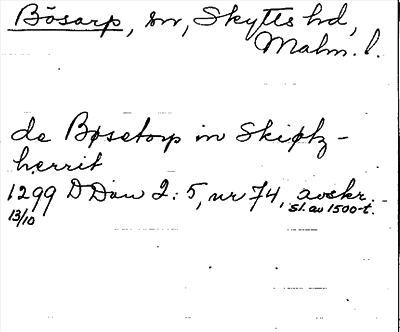 Bösarp, sn, Skytts hd,
Malm. l.
de Bøsetorp in Skiøtz-
herrit
1299 DDan 2:5, nr 74, avskr.
13/10 sl. av 1500-t.